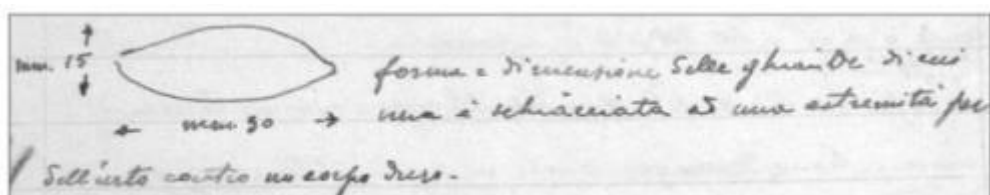 mm. 15
forma e dimensione delle ghiande di cui
una è schiacciata ad una estremità per
mm. 30
dell'urto contro un corpo duro.